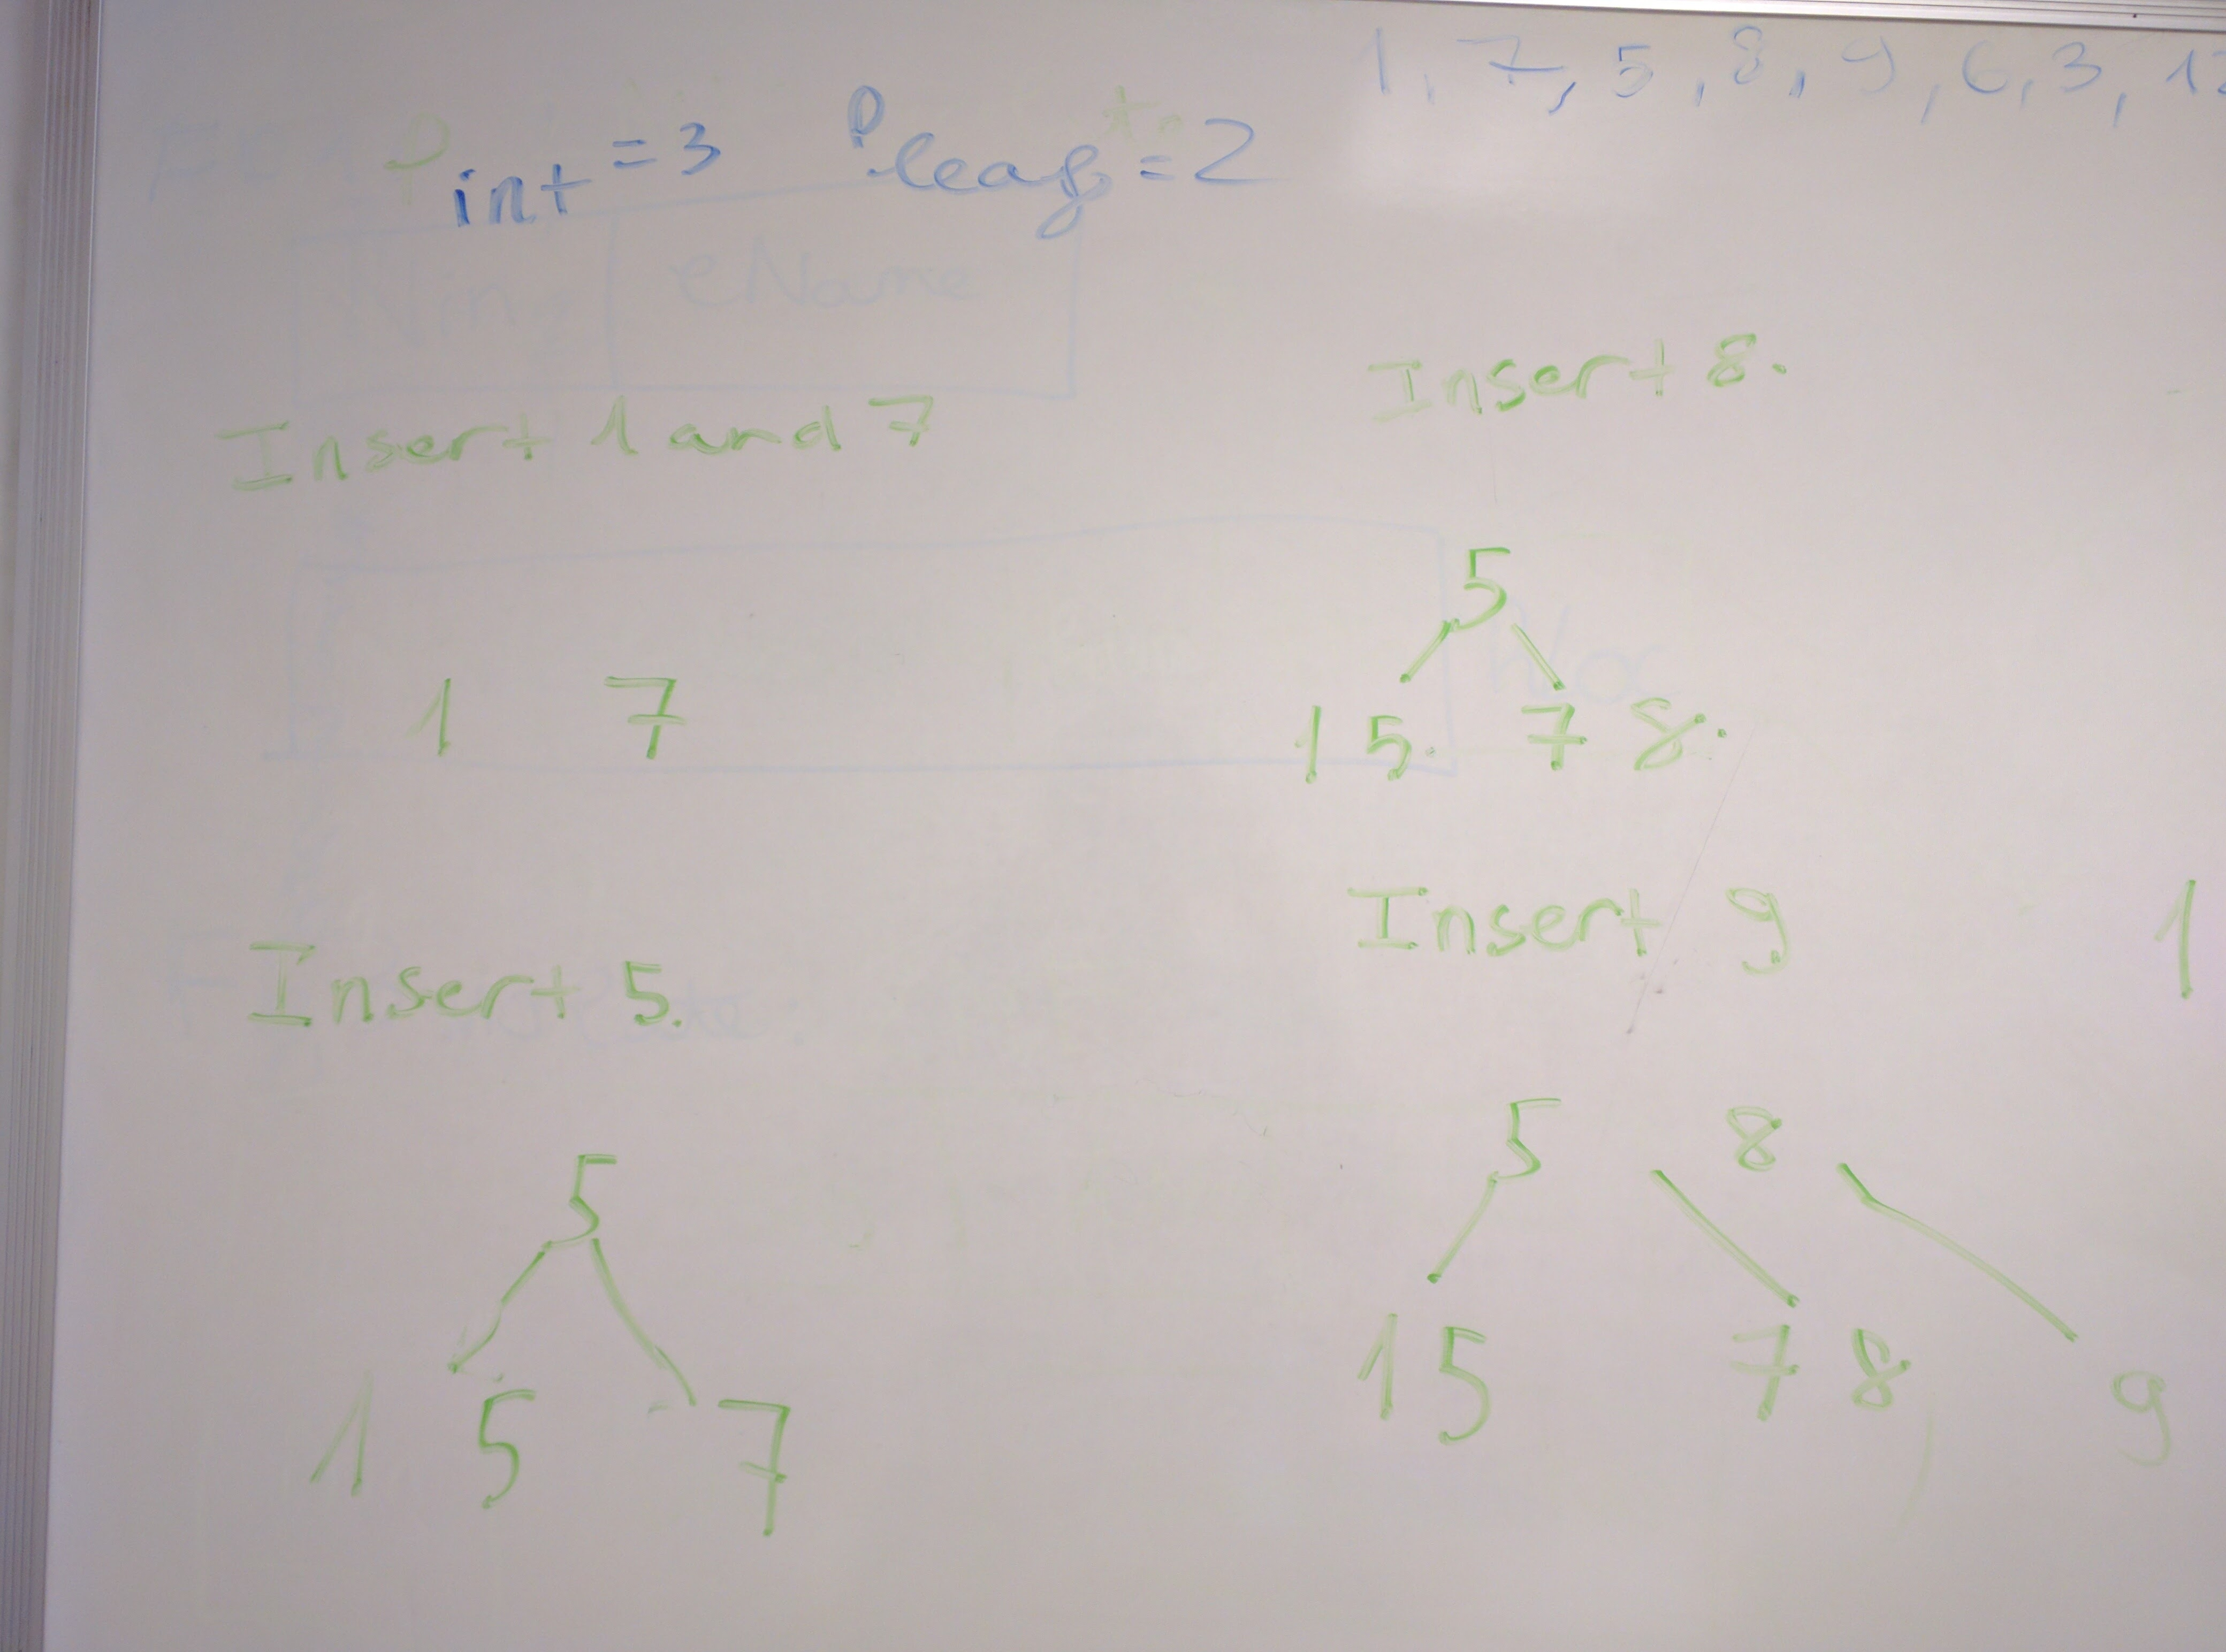 1, 7, 5, 8, 9, 6, 3, 12
Pint = 3 Pleaf = 2
eName
Insert 1 and 7
1 7
Insert 5.
5
1 5 7
Insert 8.
5
1 5. 7 8.
Insert 9
1
5 8
1 5 7 8 9